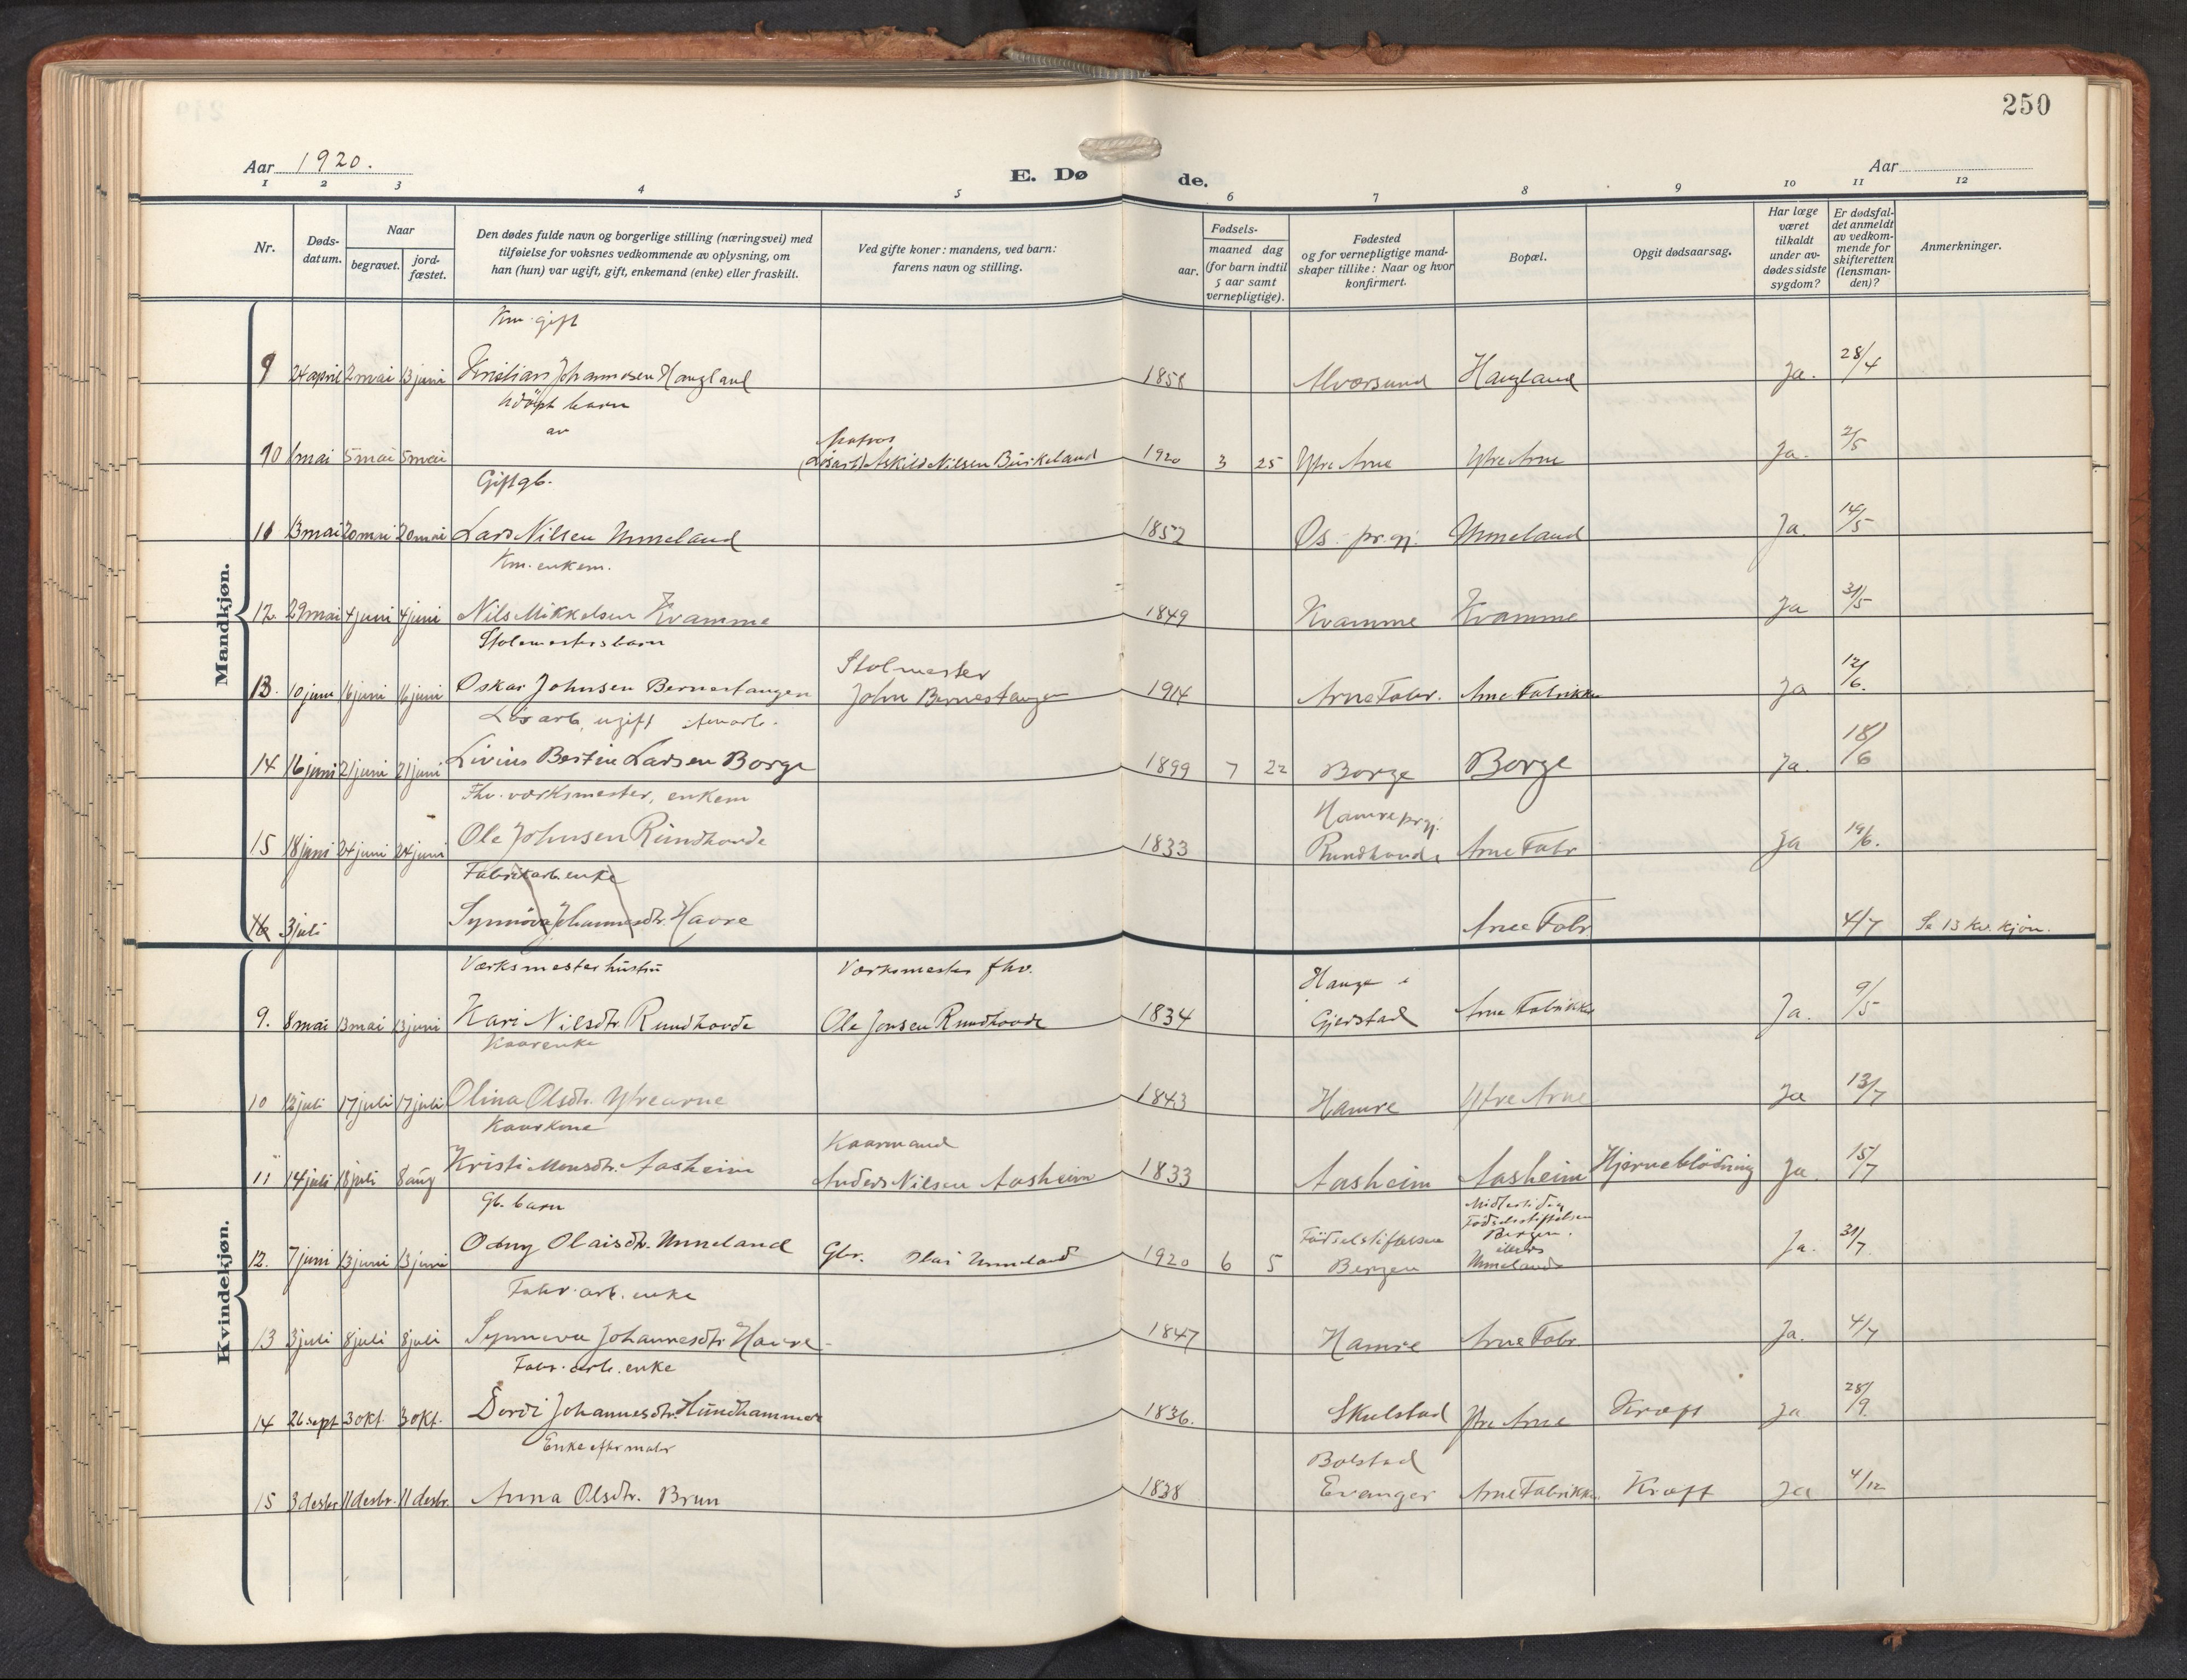 250
Aar 1920.
E. Døde.
Aar
1 2 3 4 5 6 7 8 9 10 11 12
Nr.
Dødsdatum.
Naar
begravet.
jordfæstet.
Den dødes fulde navn og borgerlige stilling (næringsvei) med
tilføielse for voksnes vedkommende av oplysning, om
han (hun) var ugift, gift, enkemand (enke) eller fraskilt.
Ved gifte koner: mandens, ved barn:
farens navn og stilling.
Fødsels-
aar.
maaned dag
(for barn indtil
5 aar samt
vernepligtige).
Fødested
og for vernepligtige mand-
skaper tillike: Naar og hvor
konfirmert.
Bopæl.
Opgit dødsaarsag.
Har læge
været
tilkaldt
under av-
dødes sidste
sygdom?
Er dødsfal-
det anmeldt
av vedkom-
mende for
skifteretten
(lensman-
den)?
Anmerkninger.
Mandkjøn.
Km. gift
9 24 april 2 mai 13 juni Kristian Johannesen Haugland 1858 Alværsund Haugland Ja. 28/4
udöpt barn
av
Matros
10 1 mai 5 mai 5 mai (Lösarb) Askild Nilsen Birkeland 1920 3 25 Ytre Arne Ytre Arne Ja. 2/5
Gift gb.
11 13 mai 20 mai 20 mai Lars Nilsen Unneland 1852 Os. pr.gj. Unneland Ja. 14/5
Km. enkem.
12. 29 mai 4 juni 4 juni Nils Mikkelsen Kvamme 1849 Kvamme Kvamme Ja 31/5
Stolemestersbarn
Stolmester
13. 10 juni 16 juni 16 juni Oskar Johnsen Bernestangen John Bernestangen 1914 Arne Fabr. Arne Fabrikker Ja 12/6.
Lös arb, ugift
14 16 juni 21 juni 21 juni Livius Bertin Larsen Borge 1899 7 22 Borge Borge Ja. 18/6
Fhv. værksmester, enkem
Hamre prgj.
15 18 juni 24 juni 24 juni Ole Johnsen Rundhovde 1833 Rundhovde Arne Fabr Ja 19/6.
Fabrikarb. enke
16 3 juli Synnöva Johannesdtr. Havre Arne Fabr. 4/7 Se 13 Kv. kjön.
Kvindekjøn.
Værksmesterhustru Værksmester fhv.
Hauge i
9. 8 mai 13 mai 13 juni Kari Nilsdtr. Rundhovde Ole Jonsen Rundhovde 1834 Gjerstad Arne Fabrikker Ja. 9/5
Kaarenke
10 12 juli 17 juli 17 juli Olina Olsdtr. Ytrearne 1843 Hamre Ytre Arne Ja 13/7
Kaarkone
Kaarmand
11 14 juli 18 juli 8 aug Kristi Monsdtr. Aasheim Anders Nilsen Aasheim 1833 Aasheim Aasheim Hjerneblödning Ja. 15/7
Gb. barn
Midlertidig
Födselsstiftelsen
Bergen.
ellers
12. 7 juni 13 juni 13 juni Odny Olaisdtr. Unneland Gbr. Olai Unneland 1920 6 5 Födselstiftelsen Bergen Unneland Ja. 31/7.
Fabr. arb. enke
13 3 juli 8 juli 8 juli Synneva Johannesdtr. Havre 1847 Hamre Arne Fabr. Ja. 4/7
Fabr. arb. enke
14 26 sept 3 okt. 3 okt. Dordi Johannesdtr. Hundhammer 1836. Skulstad Ytre Arne Kræft Ja 28/9.
Enke efter maler
Bolstad
15 3 desbr 11 desbr. 11 desbr. Anna Olsdtr. Brun 1838 Evanger Arne Fabrikker Kræft Ja 4/12